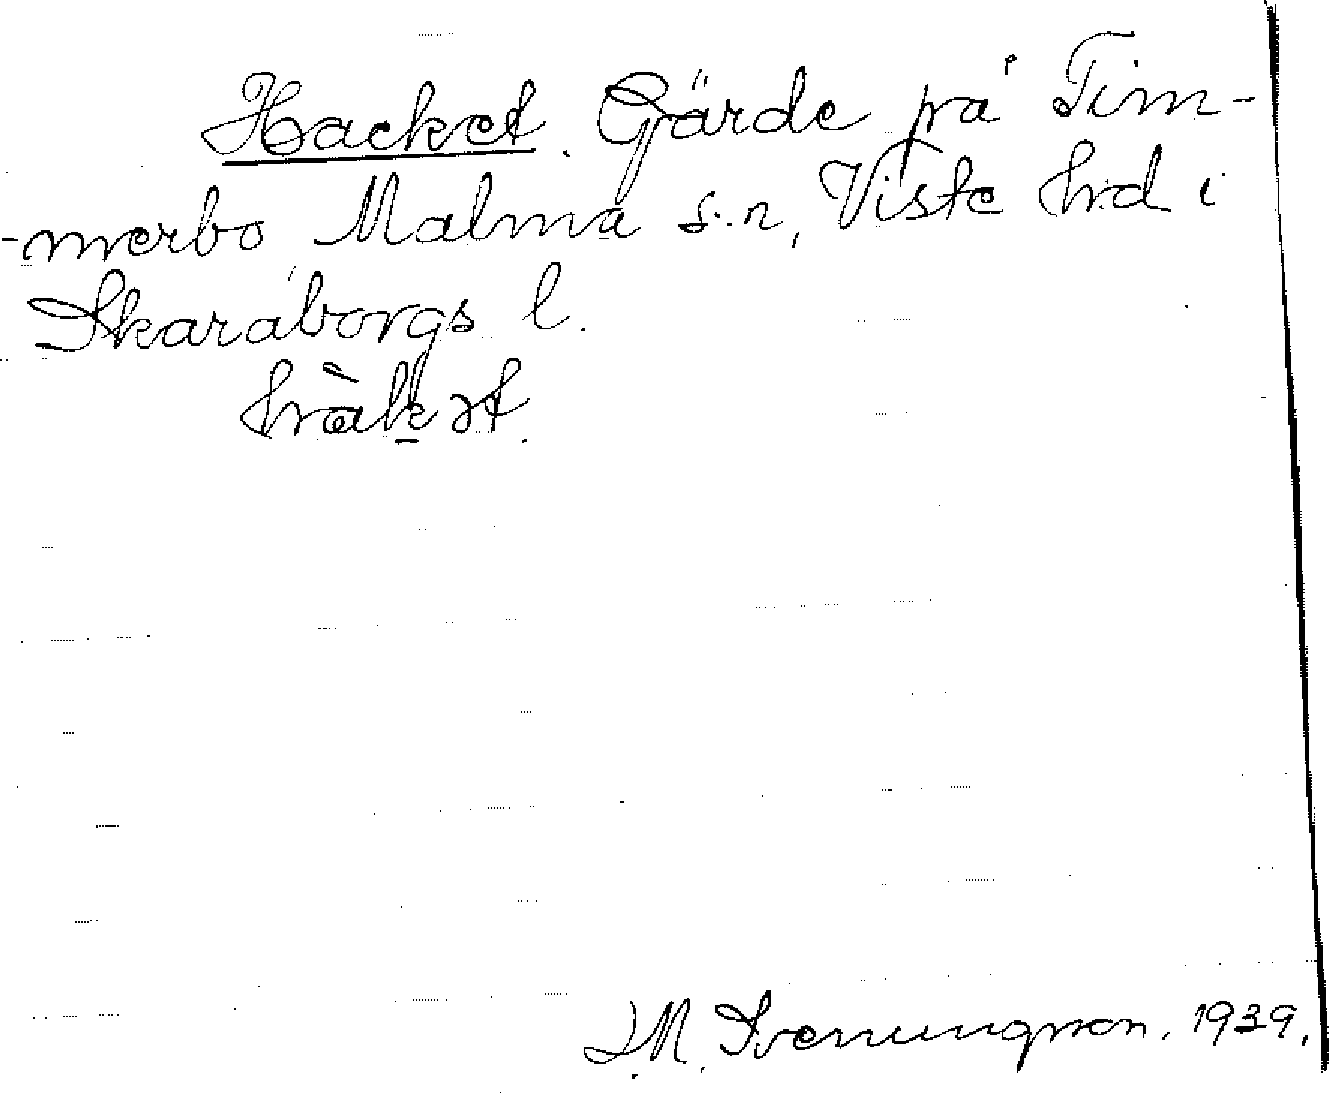 Hacket. Gärde på Tim-
-merbo Malma s.n, Viste hrd i
Skaraborgs l.
hàkət.
J.M. Svenungsson. 1939.